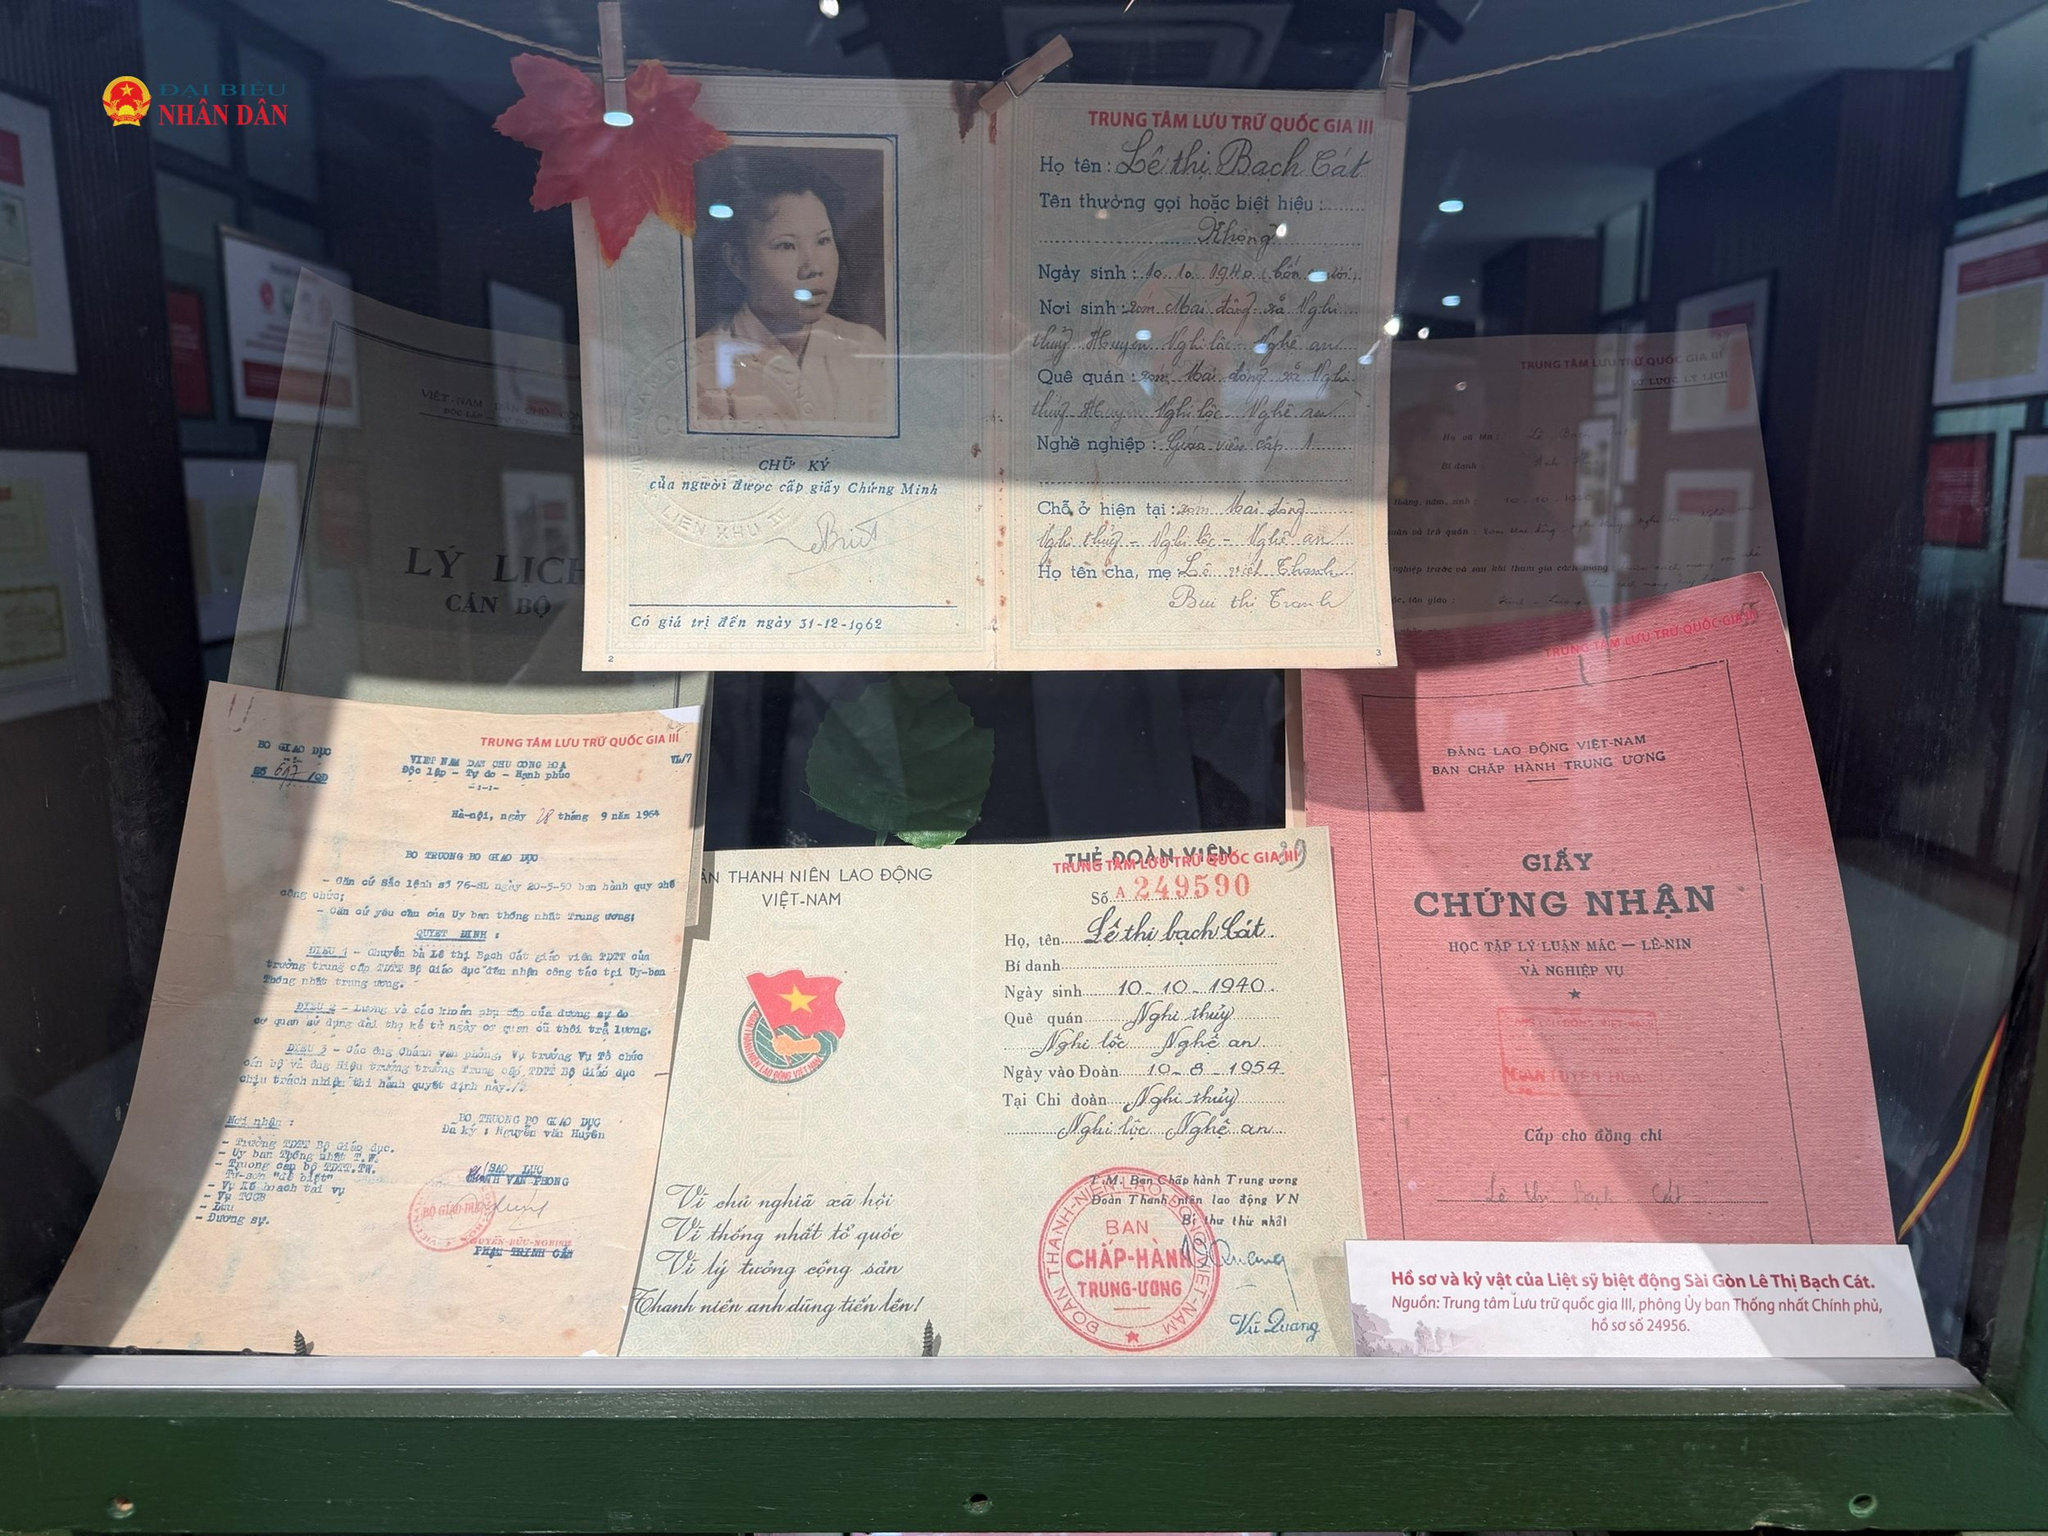 ĐẠI BIỂU
NHÂN DÂN
CHỮ KÝ
của người được cấp giấy Chứng Minh
Có giá trị đến ngày 31-12-1962
2
TRUNG TÂM LƯU TRỮ QUỐC GIA III
Họ tên: Lê thị Bạch Cát
Tên thường gọi hoặc biệt hiệu:
Không
Ngày sinh: 10.10.1940
Nơi sinh: xóm Mai đông xã Nghi
thủy Huyện Nghi lộc - Nghệ an
Quê quán: xóm Mai đông xã Nghi
thủy Huyện Nghi lộc - Nghệ an
Nghề nghiệp: Giáo viên cấp 1
Chỗ ở hiện tại: xóm Mai đông
Nghi thủy - Nghi lộc - Nghệ an
Họ tên cha, mẹ: Lê viết Thanh
Bùi thị Tranh
3
VIỆT-NAM DÂN CHỦ
LÝ LỊCH
CÁN BỘ
TRUNG TÂM LƯU TRỮ QUỐC GIA III
SƠ LƯỢC LÝ LỊCH
Họ và tên: Lê Bạch
Bí danh:
tháng, năm, sinh: 10-10-
TRUNG TÂM LƯU TRỮ QUỐC GIA III
BỘ GIÁO DỤC
Số 697/QĐ
VIỆT NAM DÂN CHỦ CỘNG HÒA
Độc lập - Tự do - Hạnh phúc
VL/7
Hà-nội, ngày 28 tháng 9 năm 1964
BỘ TRƯỞNG BỘ GIÁO DỤC
- Căn cứ sắc lệnh số 76-SL ngày 20-5-50 ban hành quy chế
công chức;
- Căn cứ yêu cầu của Ủy ban thống nhất Trung ương;
QUYẾT ĐỊNH :
ĐIỀU 1 - Chuyển bà Lê thị Bạch Cát giáo viên TDTT của
trường trung cấp TDTT Bộ Giáo dục đến nhận công tác tại Uỷ-ban
Thống nhất trung ương.
ĐIỀU 2 - Lương và các khoản phụ cấp của đương sự do
cơ quan sử dụng đài thọ kể từ ngày cơ quan cũ thôi trả lương.
ĐIỀU 3 - Các ông Chánh văn phòng, Vụ trưởng Vụ Tổ chức
cán bộ và ông Hiệu trưởng trường Trung cấp TDTT Bộ Giáo dục
chịu trách nhiệm thi hành quyết định này./.
Nơi nhận :
- Trường TDTT Bộ Giáo dục.
- Ủy ban Thống nhất T.W.
- Trường cán bộ TDTT.TW.
Từ-sơn "để biết"
- Vụ Kế hoạch tài vụ
- Vụ TCCB
- Lưu
- Đương sự.
BỘ TRƯỞNG BỘ GIÁO DỤC
Đã ký : Nguyễn văn Huyên
SAO LỤC
CHÁNH VĂN PHÒNG
BỘ GIÁO DỤC
PHẠM TRỊNH CÁN
THANH NIÊN LAO ĐỘNG
VIỆT-NAM
Vì chủ nghĩa xã hội
Vì thống nhất tổ quốc
Vì lý tưởng cộng sản
Thanh niên anh dũng tiến lên!
THẺ ĐOÀN VIÊN
TRUNG TÂM LƯU TRỮ QUỐC GIA III
Số A 249590
Họ, tên Lê thị bạch Cát
Bí danh
Ngày sinh 10-10-1940
Quê quán Nghi thủy
Nghi lộc Nghệ an
Ngày vào Đoàn 10-8-1954
Tại Chi đoàn Nghi thủy
Nghi lộc Nghệ an
T.M. Ban Chấp hành Trung ương
Đoàn Thanh niên lao động VN
Bí thư thứ nhất
ĐOÀN THANH-NIÊN LAO-ĐỘNG VIỆT-NAM
BAN
CHẤP-HÀNH
TRUNG-ƯƠNG
Vũ Quang
TRUNG TÂM LƯU TRỮ QUỐC GIA III
ĐẢNG LAO ĐỘNG VIỆT-NAM
BAN CHẤP HÀNH TRUNG ƯƠNG
GIẤY
CHỨNG NHẬN
HỌC TẬP LÝ LUẬN MÁC — LÊ-NIN
VÀ NGHIỆP VỤ
Cấp cho đồng chí
Lê thị Bạch Cát
Hồ sơ và kỷ vật của Liệt sỹ biệt động Sài Gòn Lê Thị Bạch Cát.
Nguồn: Trung tâm Lưu trữ quốc gia III, phông Ủy ban Thống nhất Chính phủ,
hồ sơ số 24956.